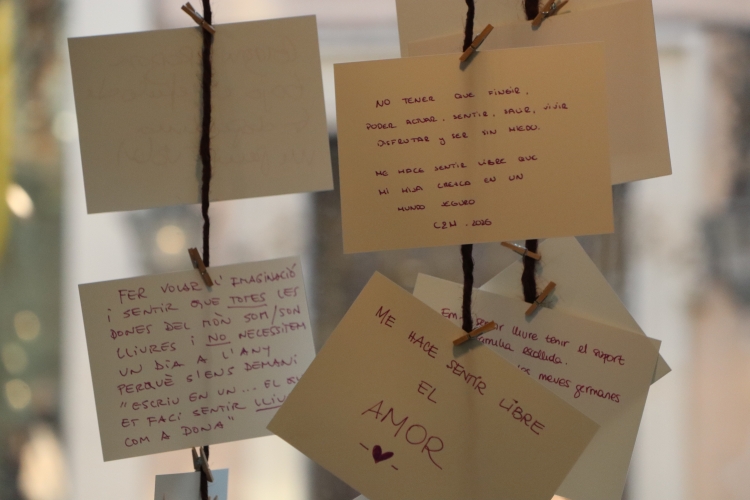 NO TENER QUE FINGIR,
PODER ACTUAR, SENTIR, SALIR, VIVIR
DISFRUTAR y SER SIN MIEDO.
ME HACE SENTIR LIBRE QUE
MI HIJA CREZCA EN UN
MUNDO SEGURO
FER VOLAR L'IMAGINACIÓ
i SENTIR QUE TOTES LES
DONES DEL MÓN SOM/SON
LLIURES i NO NECESSITEM
UN DIA A L'ANY
PERQUÈ S'ENS DEMANI
"ESCRIU EN UN... EL
ET FACI SENTIR
COM A DONA"
ME HACE SENTIR LIBRE
EL
AMOR
lliure tenir el suport
família escollida.
meves germanes